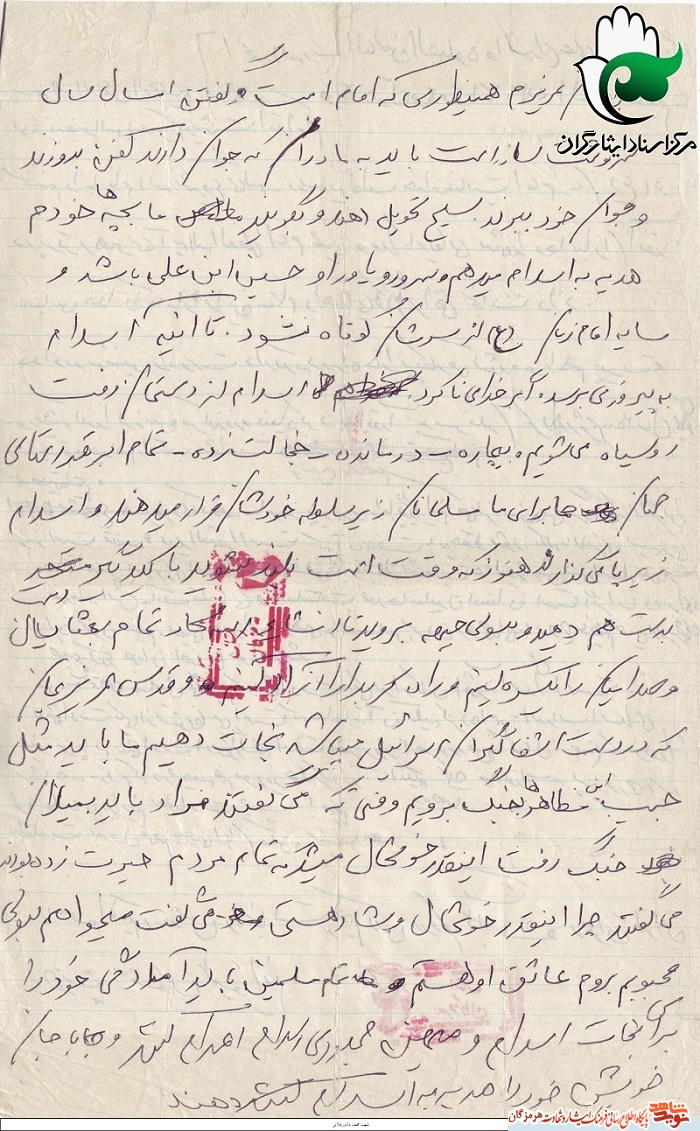 مرکز اسناد ایثارگران
عزیزم همینطوری که امام امت گفتن امسال سال
سرنوشت ساز است باید به مادران که جوان دارند کفن بدوزند
و جوان خود ببرند بسیج تحویل دهند و بگویند ما بچه های خودم
هدیه به اسلام میدهم و سرور و یاور او حسین ابن علی باشد و
سایه امام زمان (عج) از سرشان کوتاه نشود. تا اینکه اسلام
به پیروزی برسد. اگر خدای ناکرد اسلام از دستمان رفت
روسیاه می شویم، بیچاره - درمانده - خجالت زده - تمام ابر قدرتهای
جهان برای ما مسلمانان زیر سلطه خودشان قرار میدهند و اسلام
زیر پا می گذارند هنوز که وقت است بلند شوید با یکدیگر متحد
دست هم دهید و بسوی جبهه بروید تمام بعثیان
و صدامیان را کنیم و راه کربلا را آزاد کنیم و قدس عزیزمان
که در دست اشغالگران اسرائیل میباشد نجات دهیم ما باید مثل
حبیب ابن مظاهرها بجنگ برویم وقتی که می گفتند مراد باید بمیدان
جنگ رفت اینقدر خوشحال میشد که تمام مردم حیرت زده بودند
می گفتند چرا اینقدر خوشحال و شاد هستی می گفت میخواهم بسوی
محبوبم بروم عاشق او هستم تمام مسلمین باید آمادگی خود را
برای نجات اسلام و میهن جمهوری اسلامی اعلام کنند و با جان
خویش خود را هدیه به اسلام دهند
شهید محمد
نوید شاهد
پایگاه اطلاع رسانی فرهنگ ایثار و شهادت هرمزگان